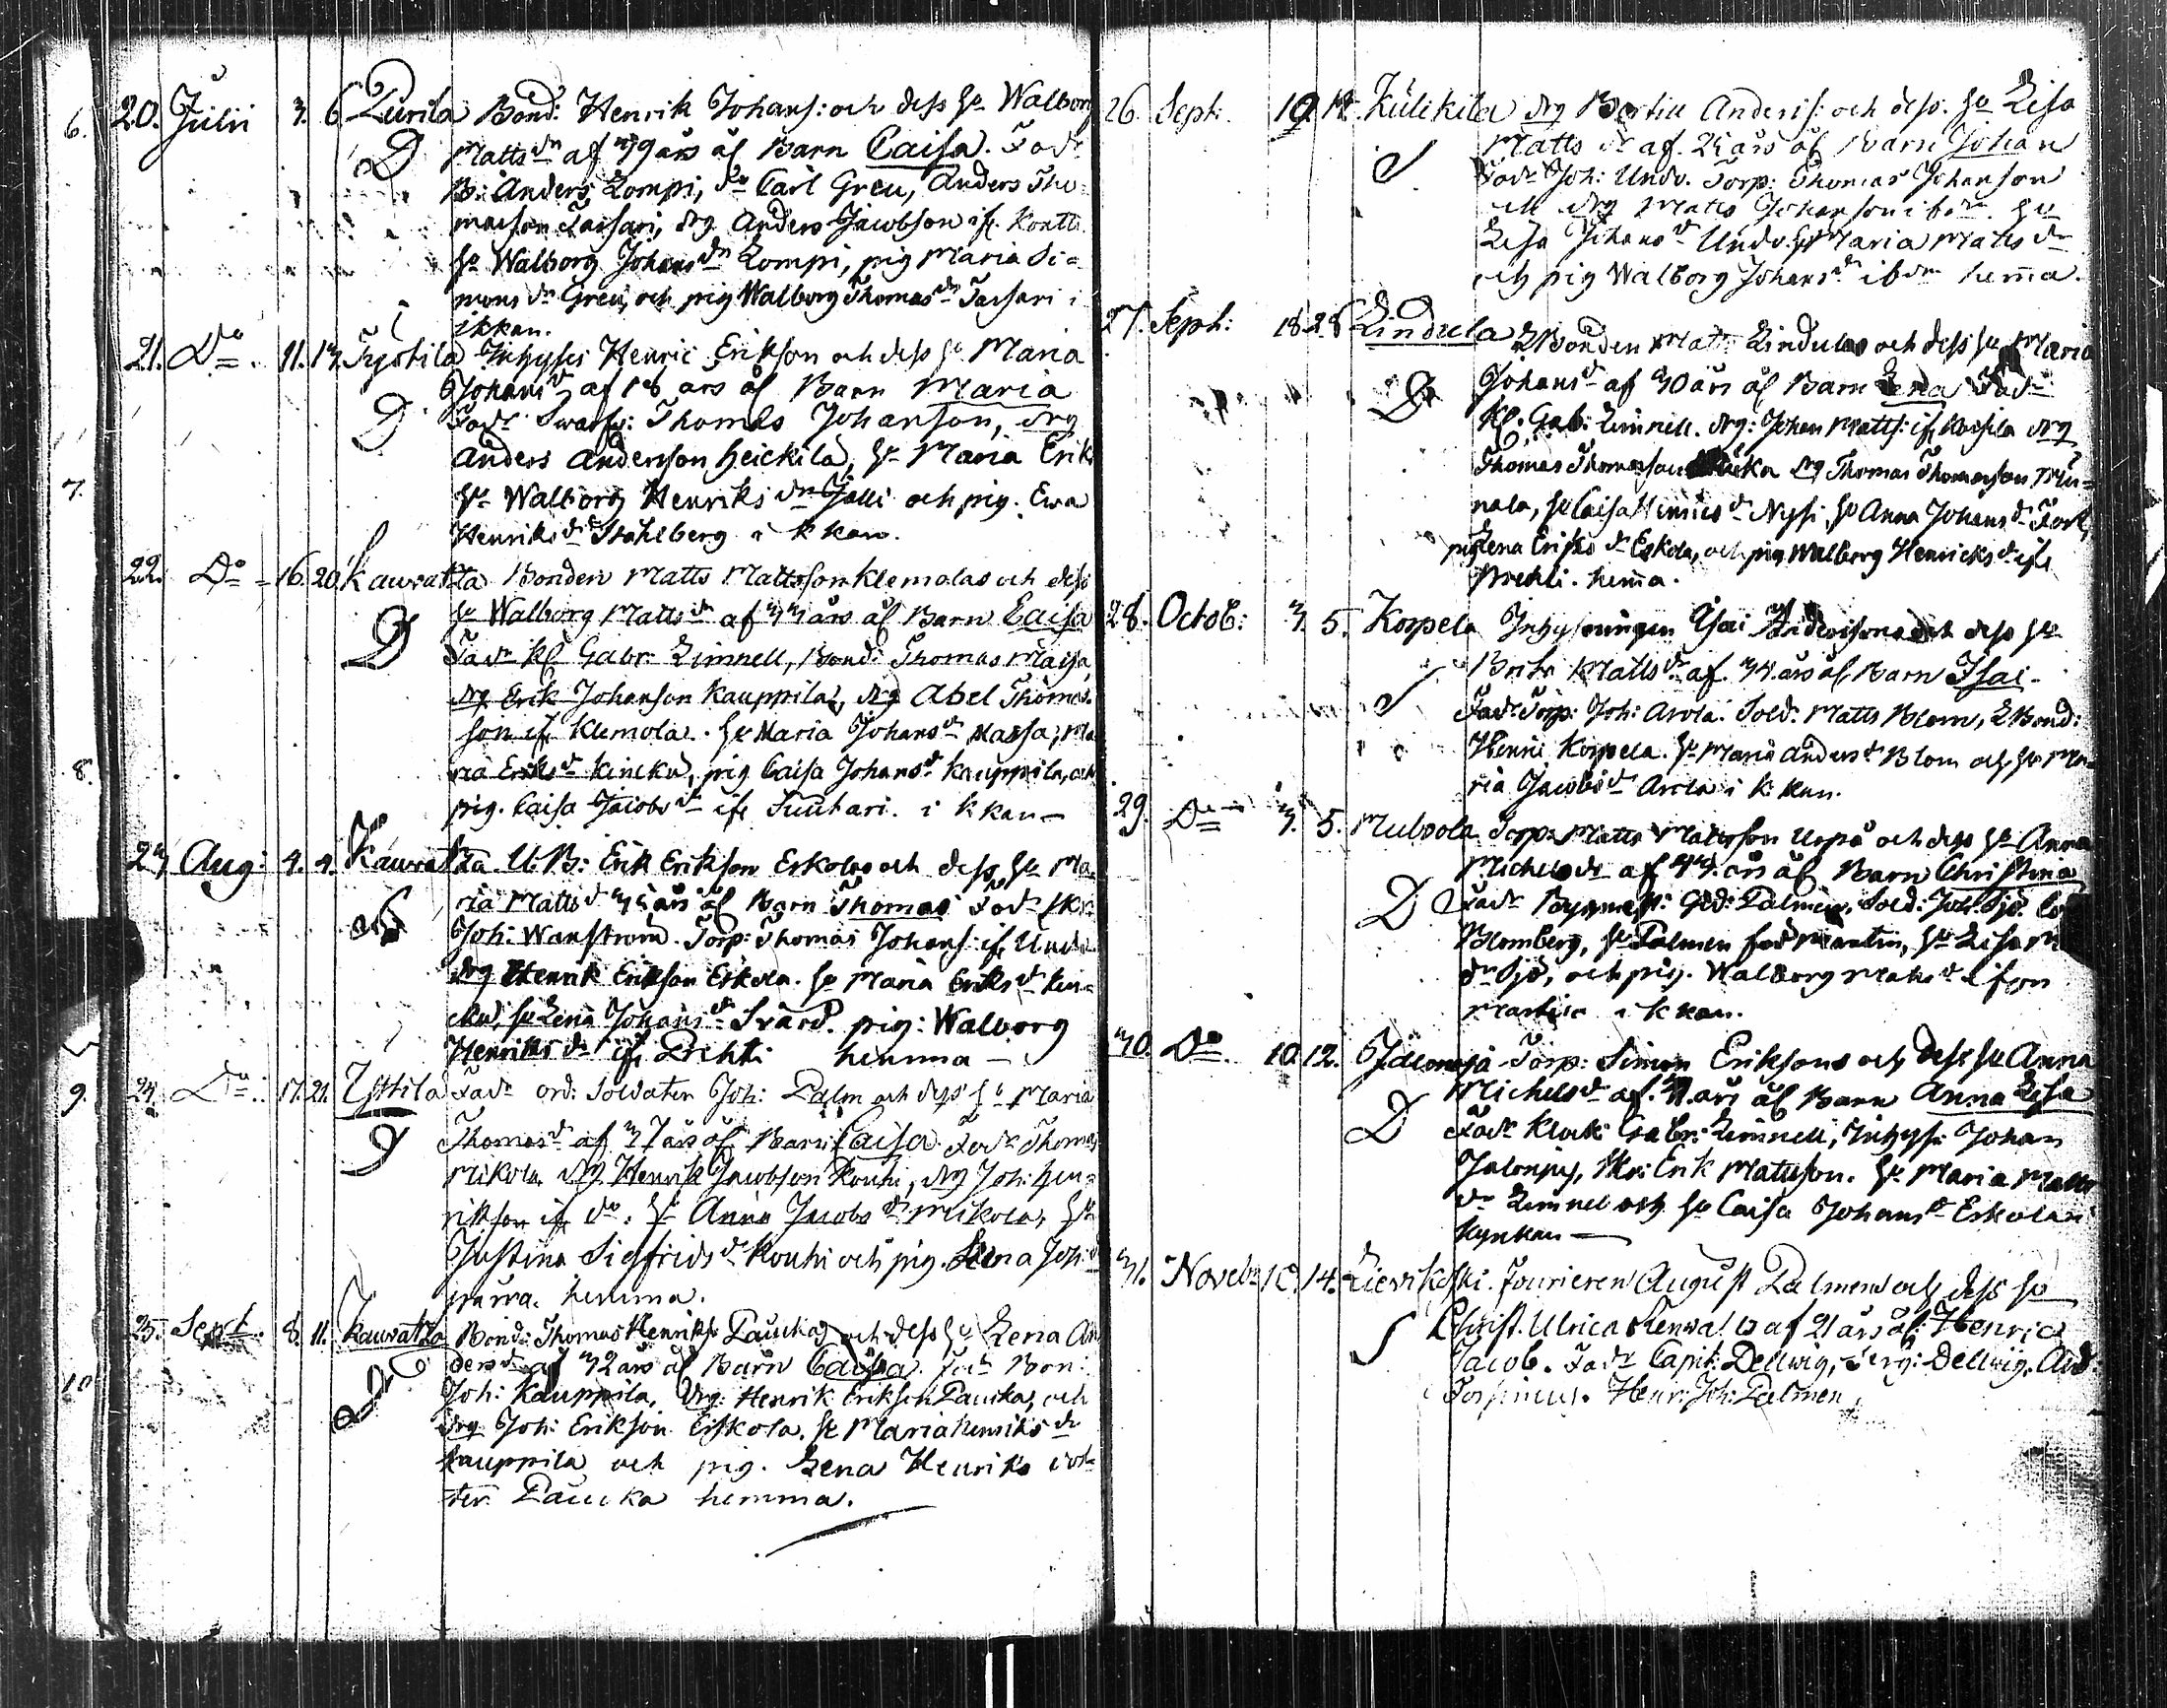 6. 20. Julii 3. 6. Lurila Bond: Henrik Johanſ: och deſs hu Walborg
D Matts dr af 39 års ål Barn Caiſa. Fadr
B: Anders Lompi, do Carl Greu, Anders Tho=
masson Tassari, drg Anders Jacobſon ifr Kontti
hu Walborg Johans dr Lompi, pig Maria Si=
mons dr Greu, och pig Walborg Thomas dr Tassari i
i kkan.
21. Do 11. 13. Henric Erikſon och deſs hu Maria
Johans dr af 18 års ål Barn Maria
D Fadr Swarfv: Thomas Johanſon, drg
Anders Anderſson Heickilä, hu Maria Eriks
7. hu Walborg Henriks dr Jälli och pig. Ewa
Henriks dr Ståhlberg i kkan.
22. Do 16. 20. Kauvatza Bonden Matts Mattsſon Klemolas och deſs
hu Walborg Matts dr af 33 års ål Barn Caiſa
D Fadr Kl. Gabr. Limnell, Bond: Thomas Maiſa,
drg Erik Johanſon Kauppila, drg Abel Thomas=
ſon ifr Klemola. hu Maria Johans dr Massa, Ma
8. ria Eriks dr Kincku, pig Caiſa Johans dr Kauppila, och
pig. Caiſa Jacobs dr ifr Suuhari. i kkan —
23 Aug: 4. 4. Kauvatza U.B: Erik Erikſon Eskolas och deſs hu Ma=
ria Matts dr 35 års ål Barn Thomas Fadr Skr:
Joh: Wanſtröm. Torp: Thomas Johanſ: ifr Undo.
drg Henrik Erikſon Eskola. hu Maria Eriks dr Kin=
cku, hu Lena Johans dr Svärd. pig: Walborg
Henriks dr ifr Prihti hemma —
9. 24. Do 17. 21. Yttilä Fadr ord: Soldaten Joh: Palm och deſs hu Maria
D Thomas dr af 37 års ål Barn Caiſa Fadr Thomas
Mikola drg Henrik Jacobſon Rouhi, drg Joh: Hen=
rikſon ifr do. hu Anna Jacobs dr Mikola, hu
Juſtina Sigfrids dr Rouhi och pig. Lena Joh: dr
hemma.
25. Sept. 8. 11. Kauvatza Bond: Thomas Henrikſ: Pauckas och deſs hu Lena An
ders dr af 32 års ål Barn Caiſa. Fadr Bon:
10 Joh: Kauppila, Drg: Henrik Erikſon Paucka, och
drg Joh: Erikſon Eskola. hu Maria Henriks dr
Kauppila och pig. Lena Henriks dot=
ter Paucka hemma.
26. Sept: 19. Külikilä drg Bertill Anderſ: och deſs. hu Liſa
S Matts dr af. 25 års ål Barn Johan
Fadr Joh: Undo. Torp: Thomas Johanſon
och drg Matts Johanſon ibm. hu
Liſa Johans dr Undo. hu Maria Matts dr
och pig Walborg Johans dr ibm hem̄a.
27. Sept: 18. 28 Lindula Bonden Matts Lindulas och deſs hu Maria
Johans dr af 30 års ål Barn Lena Fadr
D Kl. Gab: Limnell. drg: Johan Mattſ: ifr drg
Thomas Thomasſon drg Thomas Thomasſon
nala, hu Caiſa Henrics dr Nyſi, hu Anna Johans dr
pig Lena Eriks dr Eskola, och pig Walborg Henricks dr ifr
Prihti. hem̄a.
28. Octob: 3. 5. Korpela Inhyſningen Iſai Anderſons och deſs hu
Brita Matts dr af. års ål Barn Iſai.
S Fadr Torp: Joh: Arola. Sold: Matts Blom, Bond:
Henric Korpela. hu Maria Anders dr Blom och hu Ma=
ria Jacobs dr Arola i k kan.
29. Do 3. 5. Torp: Matts Matsſon Uopa och deſs hu Anna
Michels dr af års ål Barn Chriſtina
D Fadr Palmén. Sold: Joh: Sjö.
Blomberg, hu Palmen född Martin, hu Liſa
dr Sjö, och pig. Walborg Mats dr ifrån
i k kan.
30. Do 10. 12. Torp: Simon Erikſons och deſs hu Anna
Michels dr af. års ål Barn Anna Liſa
D Fadr Klock: Gabr: Limnell, Inhyſ: Johan
Jalonius, Skr: Erik Matsſon. hu Maria Matts
dr Limnel och hu Caiſa Johans dr Eskola i
kyrkan —
31. Novebr 10. 14. Lievikoſki. Fourieren Auguſt Palmens och deſs hu
S Chriſt. Ulrica af 21 års ål: Henric
Jacob. Fadr Capit: Dellwig, Serg: Dellwig. And:
Forſmius. Henr: Joh: Palmen.